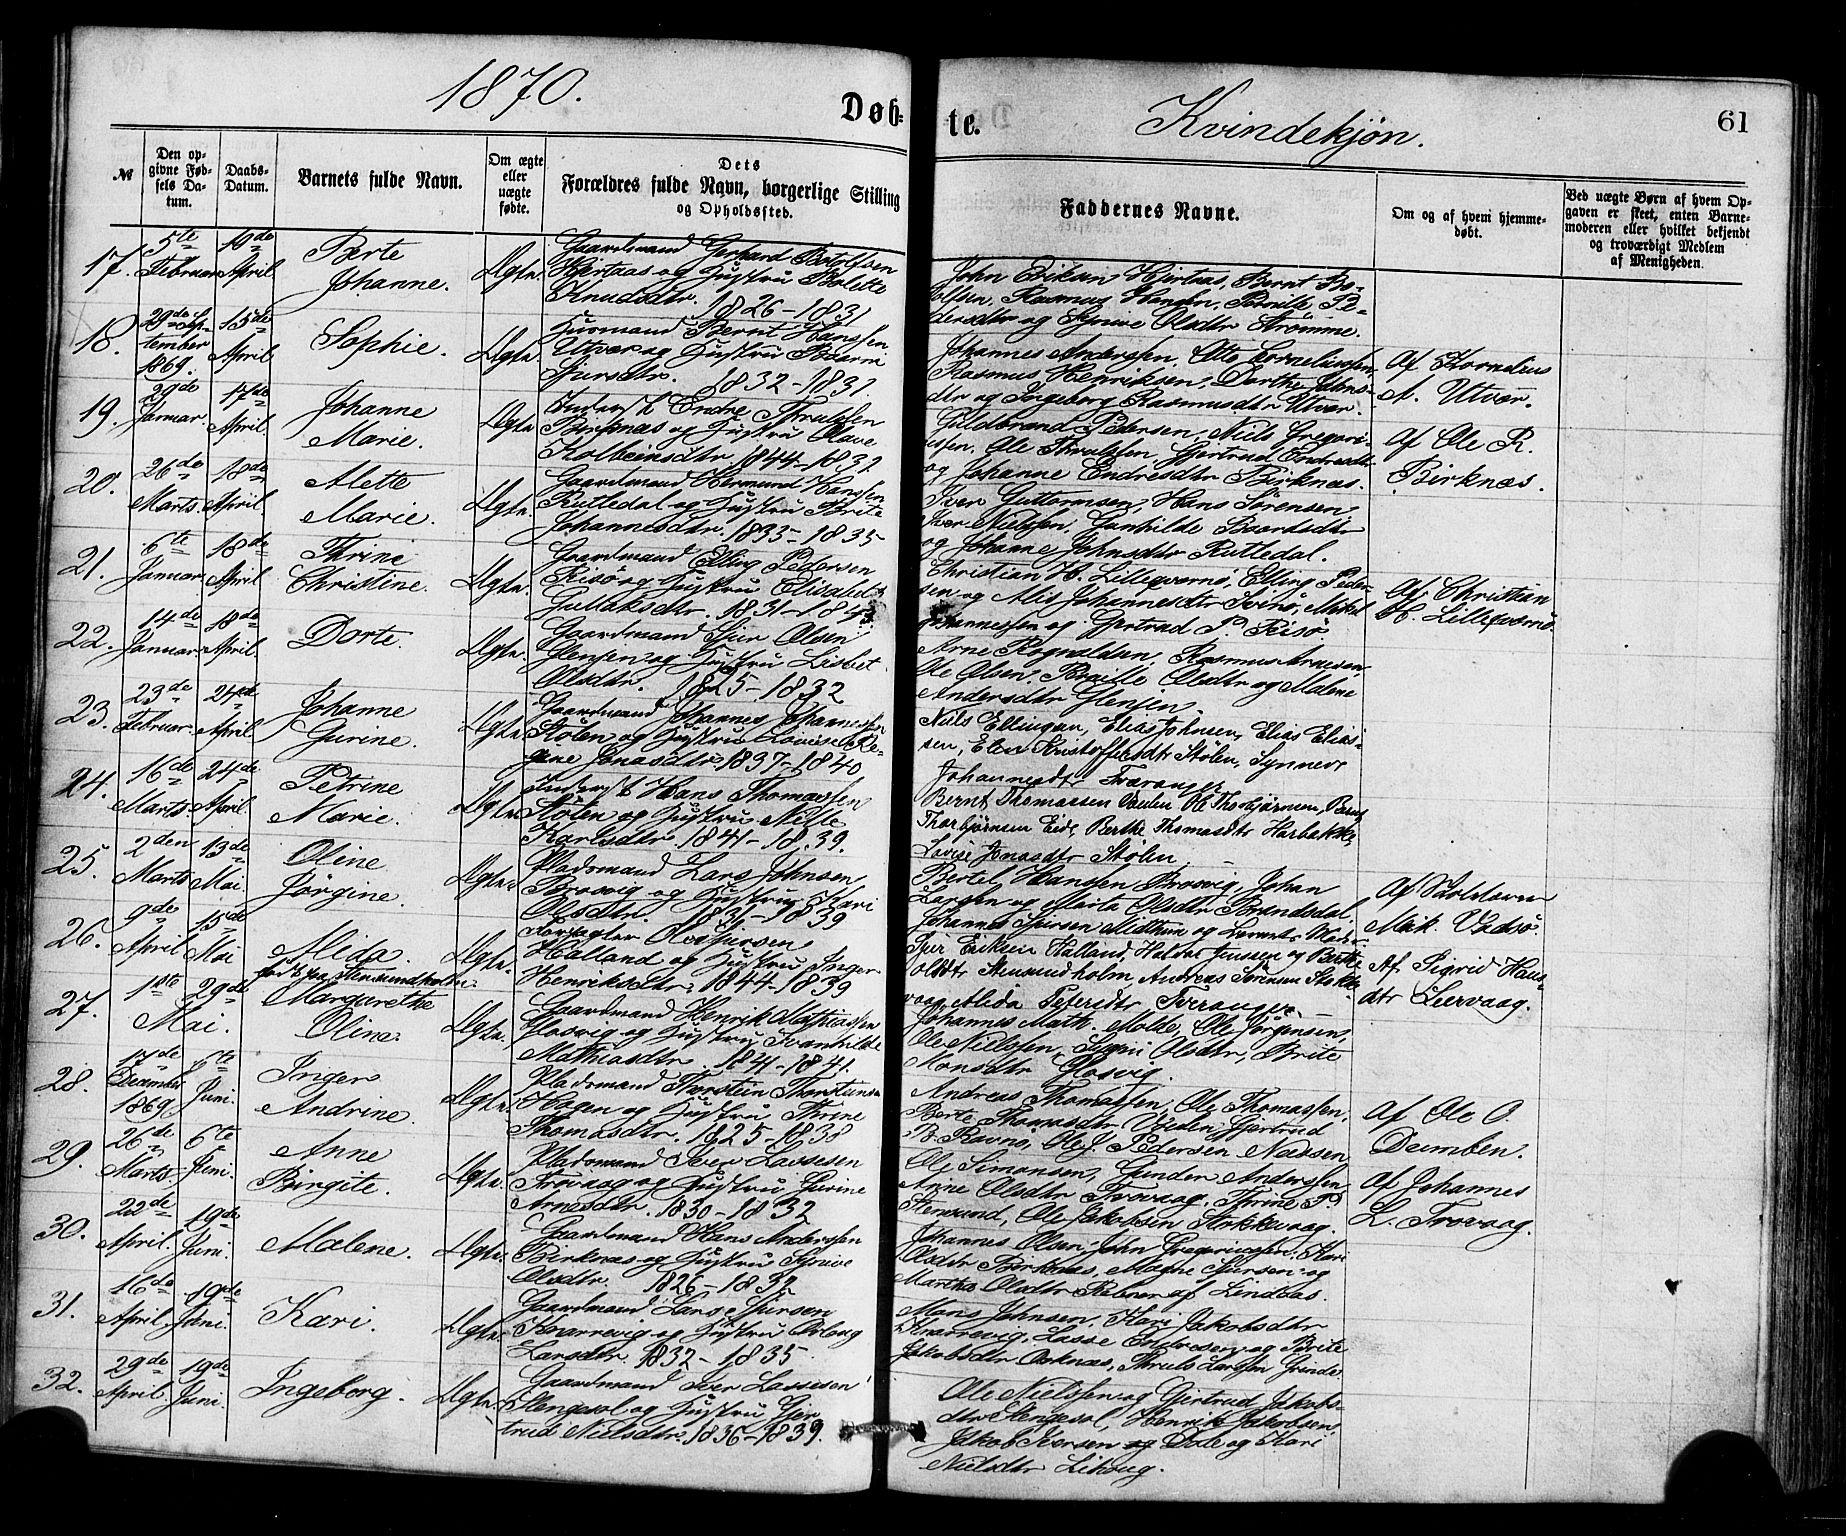 1870.
Døb-
te.
Kvindekjøn.
61
№
Den op-
givne Fød-
sels Da-
tum.
Daabs-
Datum.
Barnets fulde Navn.
Om ægte
eller
uægte
fødte.
Dets
Forældres fulde Navn, borgerlige Stilling
og Opholdssted.
Faddernes Navne.
Om og af hvem hjemme-
døbt.
Ved uægte Børn af hvem Op-
gaven er skeet, enten Barne-
moderen eller hvilket bekjendt
og troværdigt Medlem
af Menigheden.
17. 5te Februar 10de April
Berte
Johanne.
Ægte.
Gaardmand Gerhard Botolfsen
Hjertaas og Hustru Bolette
Knudsdtr. 1826-1831
John Eriksen Hjertaas, Bernt Bo-
olfsen, Rasmus Hansen, Pernille Pe-
dersdtr og Synive Olsdtr Strømme.
18. 29de Sep-
tember
1869. 15de April
Sophie.
Ægte.
Huusmand Bernt Hanssen
Utvær og Hustru
Sjursdtr. 1832-1831
Johannes Anderssen, Otto Corneliussen,
Rasmus Henriksen, Dorthe Johns-
dtr og Ingeborg Rasmusdtr Utvær.
Af Kornelius
A. Utvær.
19. 29de Januar. 17de April.
Johanne
Marie.
Ægte
Inderst Endre Thrulssen
Birknæs og Hustru Olave
Kolbeinsdtr 1844-1832
Guldbrand Pedersen, Niels Gregori-
ussen, Ole Thrulssen, Gjertrud Endresdtr
og Johanne Endresdtr Birknæs.
Af Ole R.
Birknæs.
20. 26de Marts. 18de April
Alette
Marie.
Ægte.
Gaardmand Hermund Hanssen
Rutledal og Hustru Brite
Johannesdtr. 1833-1835
Iver Guttormsen, Hans Sørensen
Iver Nielssen, Gunhilde Baardsdtr
og Johanne Johnsdtr Rutledal.
21. 6te Januar. 18de April
Thrine
Christine.
Ægte.
Gaardmand Elling Pedersen
Risø og Hustru Elisabet
Gullaksdtr. 1831-
Christian H. Lilleqværnø, Elling Peder-
sen og Alis Johannesdtr Sværø, Mikal
Johannessen og Gertrud P. Risø.
Af Christian
H. Lilleqværnø
22. 14de Januar. 18de April.
Dorte.
Ægte.
Gaardmand Sjur Olsen
Glensen og Hustru Lisbet
Olsdtr. 1825-1832
Arne Rognaldsen, Rasmus Arnesen,
Ole Olsen, Brite Olsdtr og Malene
Andersdtr Glenjen.
23. 23de Februar. 24de April.
Johanne
Gurine.
Ægte.
Gaardmand Johannes Johannessen
Stølen og Hustru Lovise Re-
gine Jonasdtr 1837-1840
Niels Ellingsen, Elias Johnsen, Elias Elias-
sen, Elen Kristoffersdtr Stølen, Synneve
Johannesdtr Træranger
24. 16de Marts. 24de April.
Petrine
Marie.
Ægte
Inderst Hans Thomassen
Stølen og Hustru Nille
Karlsdtr 1841-1839.
Bernt Thomassen Vadlen, Ole Thorbjørnsen, Bernt
Thorbjørnsen Eide, Berthe Thomasdtr Harbakke,
Lovise Jonasdtr Stølen
25. 2den Marts 13de Mai
Oline
Jørgine.
Ægte.
Pladsmand Lars Johnsen
Brosvig og Hustru Kari
Olsdtr. 1831-1839
Bertel Hanssen Brosvig, Johan
Larsen og Marta Olsdtr Brandsdal.
Johannes Sjursen Midthun og
Af
Mik. Vadsø.
26. 9de April 15de Mai
Alida.
født paa Stensundholm
Ægte.
Ole Sjursen
Halland og Hustru Inger
Henriksdtr. 1844-1839
Sjur Eriksen Halland, Halvor Jenssen og Berthe
Olsdtr Stensundholm, Andreas Sørensen Stokke-
vaag, Alida Petersdtr Tveranger.
Af Sigrid Hans-
dtr Leervaag.
27. 1ste Mai. 29de
Margarethe
Oline.
Ægte.
Gaardmand Henrik Mathiassen
Glosvig og Hustru Svanhilde
Mathiasdtr. 1841-1841.
Johannes Math. Molde, Ole Jørgensen,
Ole Nielssen, Sygni Olsdtr, Brite
Monsdtr Glosvig.
28. 17de December
1869. 6te Juni.
Inger
Andrine.
Ægte.
Pladsmand Thorstein Thorsteinsen
Hagen og Hustru Thrine
Thomasdtr. 1825-1838
Andreas Thomassen, Ole Thomassen,
Berte Thomasdtr Veden, Gjertrud
B. Ravnø, Ole J. Pedersen Næssen
Af Ole O.
Dumben.
29. 26de Marts. 6te Juni.
Anne
Birgite.
Ægte.
Pladsmand Iver Lassesen
Trovaag og Hustru Gurine
Arnesdtr. 1830-1832
Ole Simonsen, Gunder Anderssen,
Anne Olsdtr Trovaag, Thrine P.
Stensund, Ole Jakobsen Stokkevaag.
Af Johannes
L. Trovaag.
30. 22de April. 19de Juni.
Malene.
Ægte.
Gaardmand Hans Anderssen
Birknæs og Hustru Synive
Olsdtr. 1826-1832
Johannes Olsen, John Gregoriussen, Kari
Olsdtr Birknæs, Magne Sjursen og
Martha Olsdtr Rebnor af Lindaas.
31. 16de April. 19de Juni.
Kari.
Ægte
Gaardmand Lars Sjursen
Kvarrevig og Hustru Orlaug
Larsdtr. 1832-1835.
Mons Johnsen, Kari Jakobsdtr
Kvarrevig, Lasse Endresen og Brite
Jakobsdtr Oxknæs, Thruls Larssen Grinde.
32. 29de April. 19de Juni.
Ingeborg.
Ægte.
Gaardmand Iver Lassesen
Stengesol og Hustru Gjer-
trud Nielsdtr. 1836-1839.
Ole Nielssen og Gjertrud Jakobs-
dtr Stengesol, Henrik Jakobsen,
Jakob Iversen og Kari
Nielsdtr Lihaug.